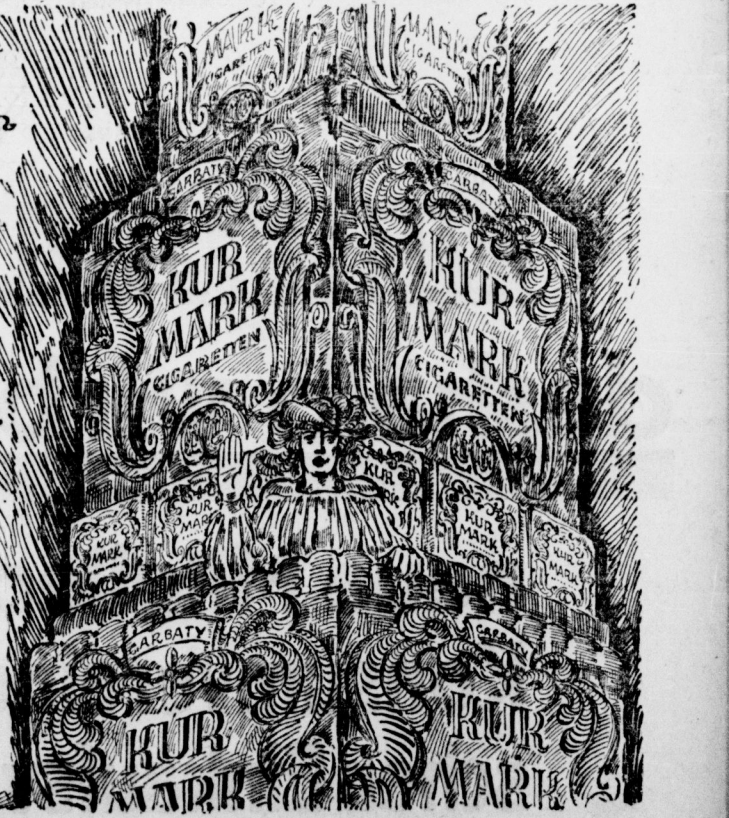 MARK
CIGARETTEN
MARK
CIGARETTEN
GARBATY
GARBATY
KUR
MARK
CIGARETTEN
KUR
MARK
CIGARETTEN
KUR
MARK
KUR
MARK
KUR
KUR
MARK
KUR
MARK
GARBATY
GARBATY
KUR
MARK
KUR
MARK